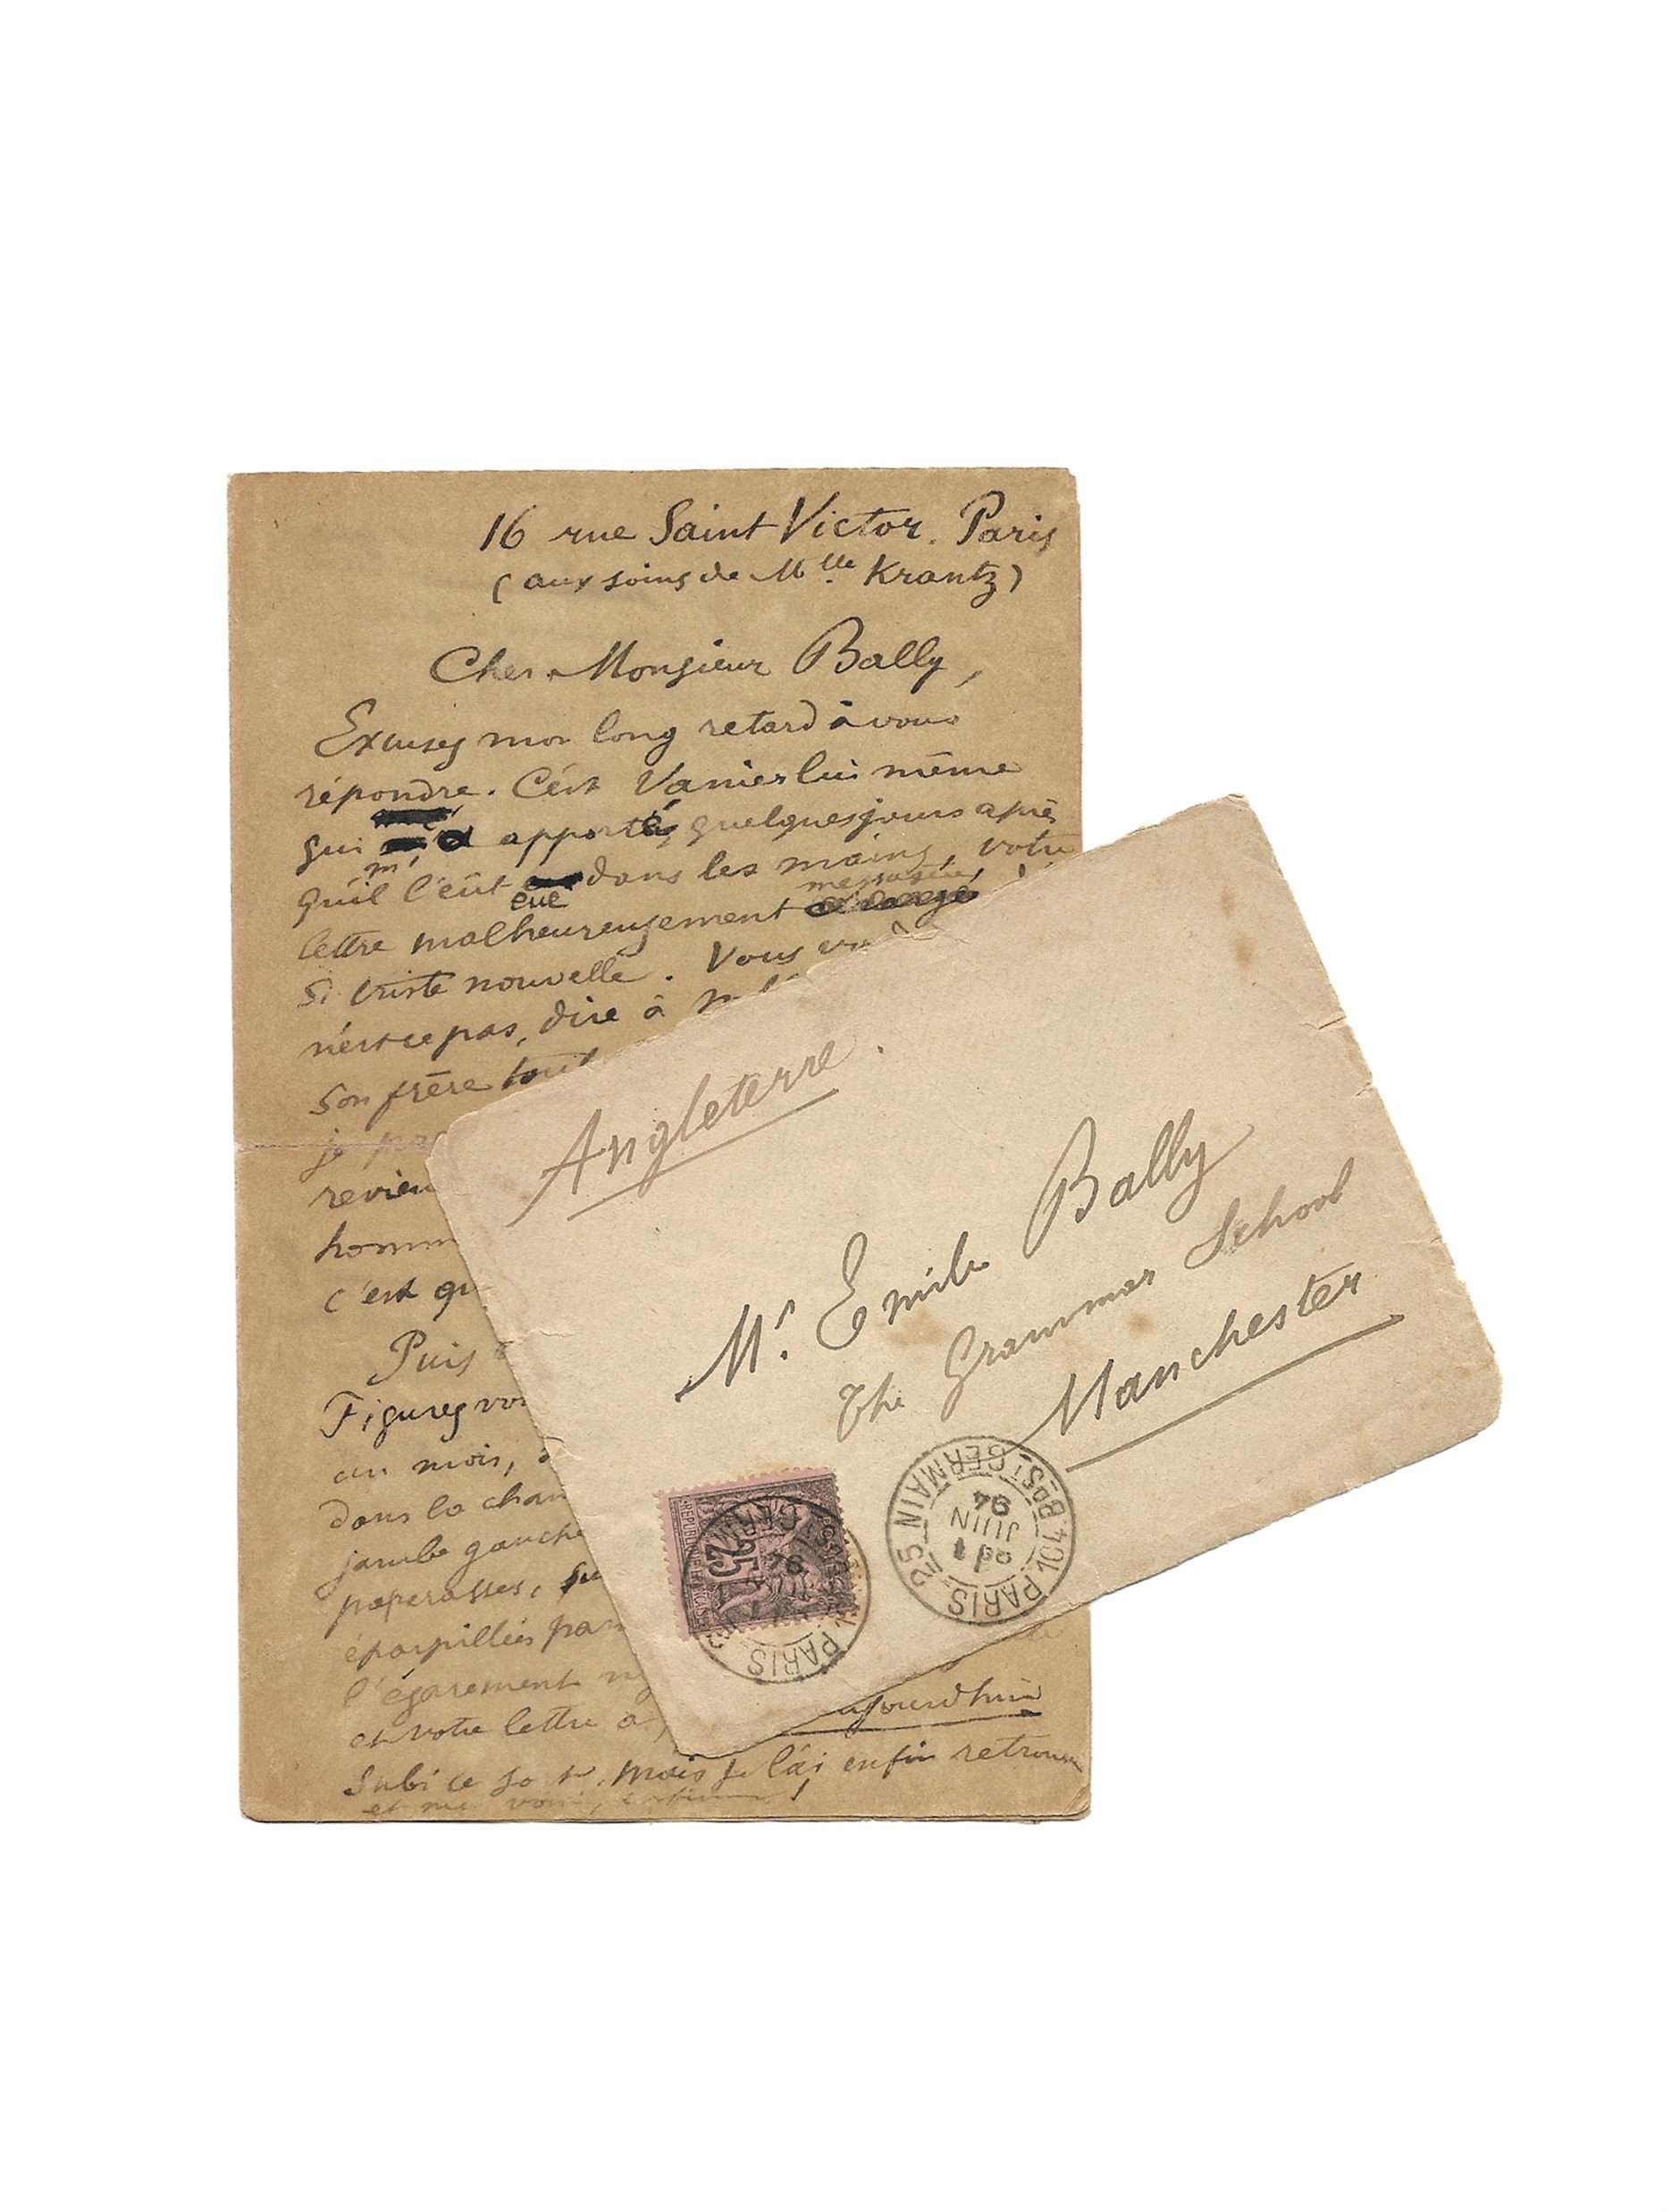 16 rue Saint Victor. Paris
(aux soins de Mlle Krantz)
Cher Monsieur Bally,
Excusez mon long retard à vous
répondre. C'est Vanier lui même
qui m'a apporté, quelques jours après
qu'il l'eût eue dans les mains, votre
lettre malheureusement messagère
si triste nouvelle. Vous
n'est ce pas, dire à
son frère tout
je
revien
homm
c'est qu
Puis
Figurez vou
au mois,
dans la cham
jambe gauche
paperasses, su
éparpillées par
l'égarement
et votre lettre a
aujourd'hui
subi ce sort. Mais je l'ai enfin retrouvée
et me voici, !
Angleterre.
Mr. Emile Bally
The Grammar School
Manchester
REPUBLIQUE FRANÇAISE
25
PARIS
94
PARIS 104
Bd St GERMAIN
JUIN
94